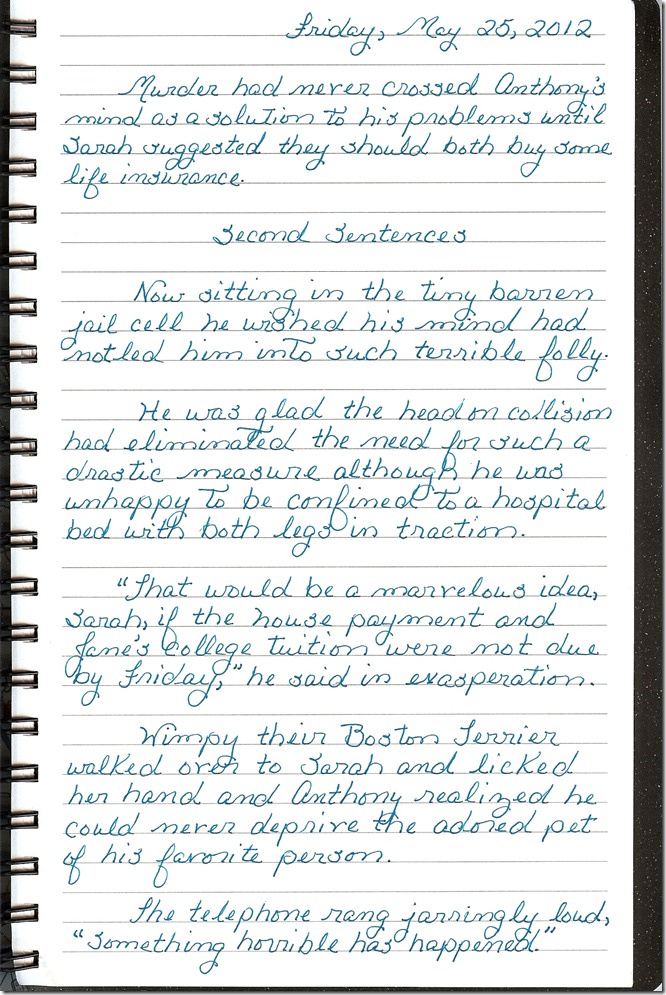 Friday, May 25, 2012
Murder had never crossed Anthony's
mind as a solution to his problems until
Sarah suggested they should both buy some
life insurance.
Second Sentences
Now sitting in the tiny barren
jail cell he wished his mind had
not led him into such terrible folly.
He was glad the head on collision
had eliminated the need for such a
drastic measure although he was
unhappy to be confined to a hospital
bed with both legs in traction.
"That would be a marvelous idea,
Sarah, if the house payment and
Jane's college tuition were not due
by Friday," he said in exasperation.
Wimpy their Boston Terrier
walked over to Sarah and licked
her hand and Anthony realized he
could never deprive the adored pet
of his favorite person.
The telephone rang jarringly loud,
"Something horrible has happened."